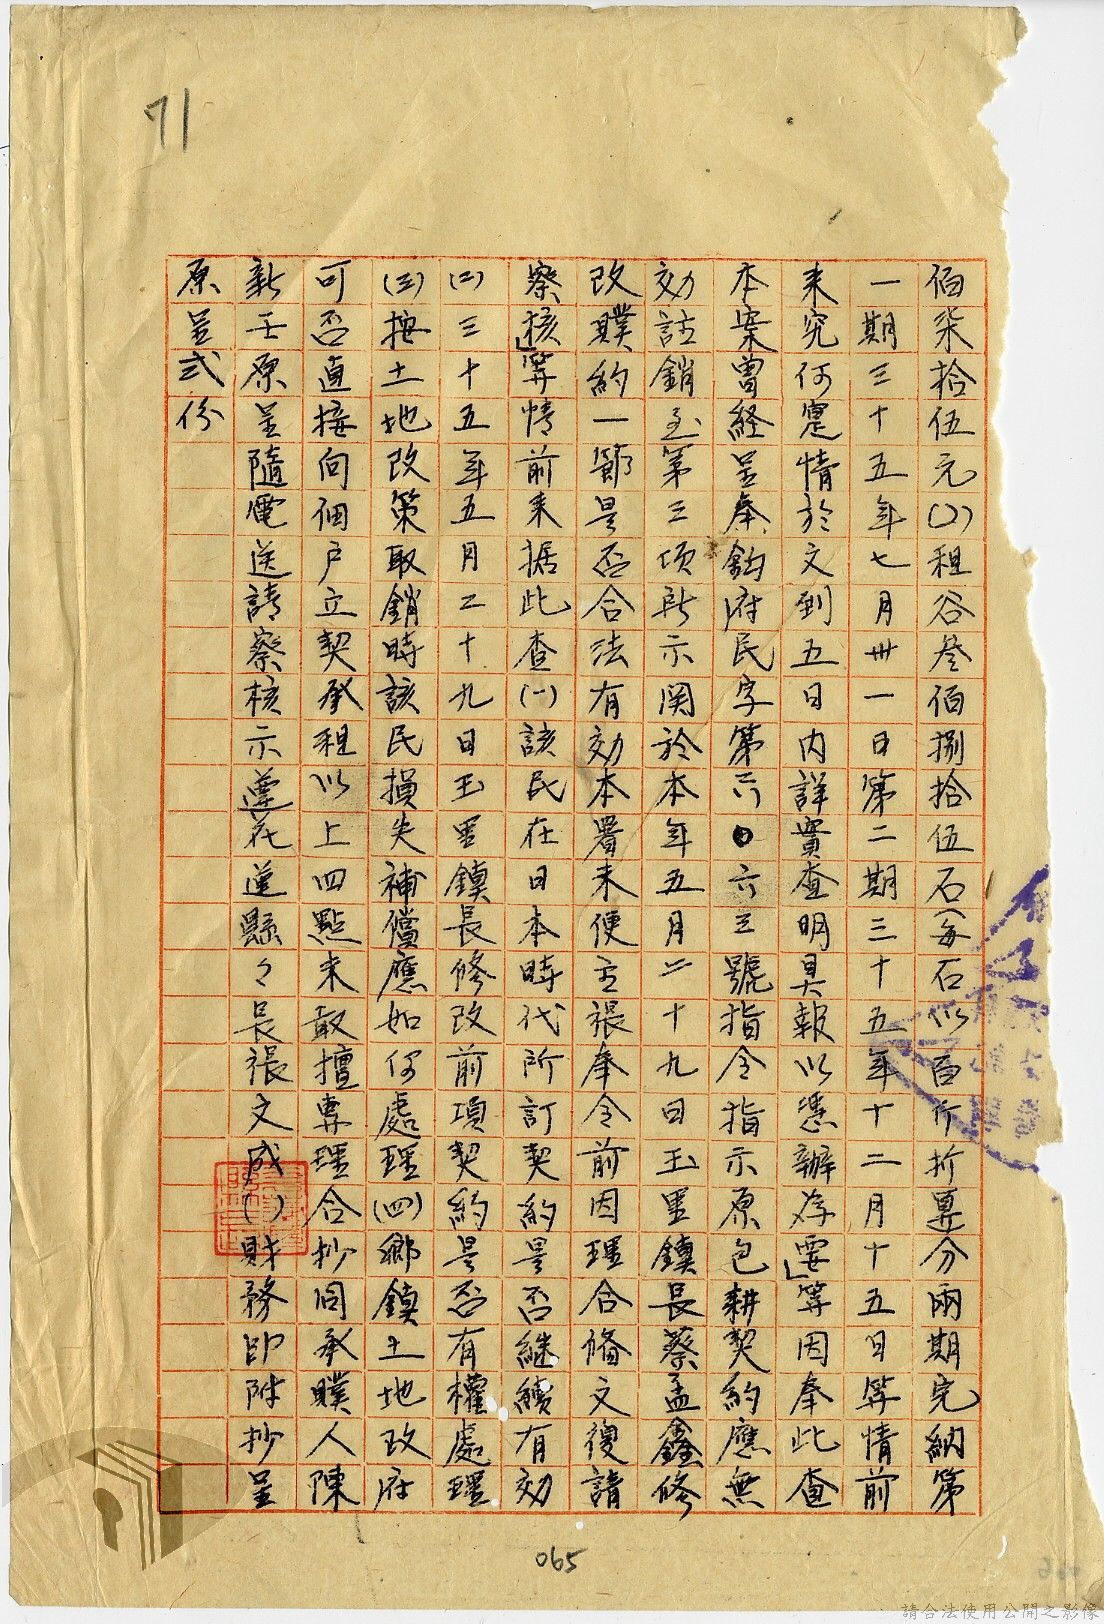 71
佰柒拾伍元(2)租谷叁佰捌拾伍石(每石以百斤折算)分兩期完納第
一期三十五年七月卅一日第二期三十五年十二月十五日等情前
来究何寔情於文到五日内詳實查明具報以憑辦為要」等因奉此查
本案曾経呈奉鈞府民字第六〇六三號指令指示原包耕契約應無
効註銷至第三項所示関於本年五月二十九日玉里鎮長蔡孟鑫修
改贌約一節是否合法有効本署未便主張奉令前因理合備文復請
察核」等情前来据此查(一)該民在日本時代所訂契約是否継續有効
(二)三十五年五月二十九日玉里鎮長修改前項契約是否有權處理
(三)按土地改策取銷時該民損失補償應如何處理(四)鄉鎮土地改府
可否直接向佃户立契承租以上四點未敢擅專理合抄同承贌人陳
新壬原呈隨電送請察核示遵花蓮縣々長張文成( )財務印附抄呈
原呈式份
065
請合法使用公開之影像